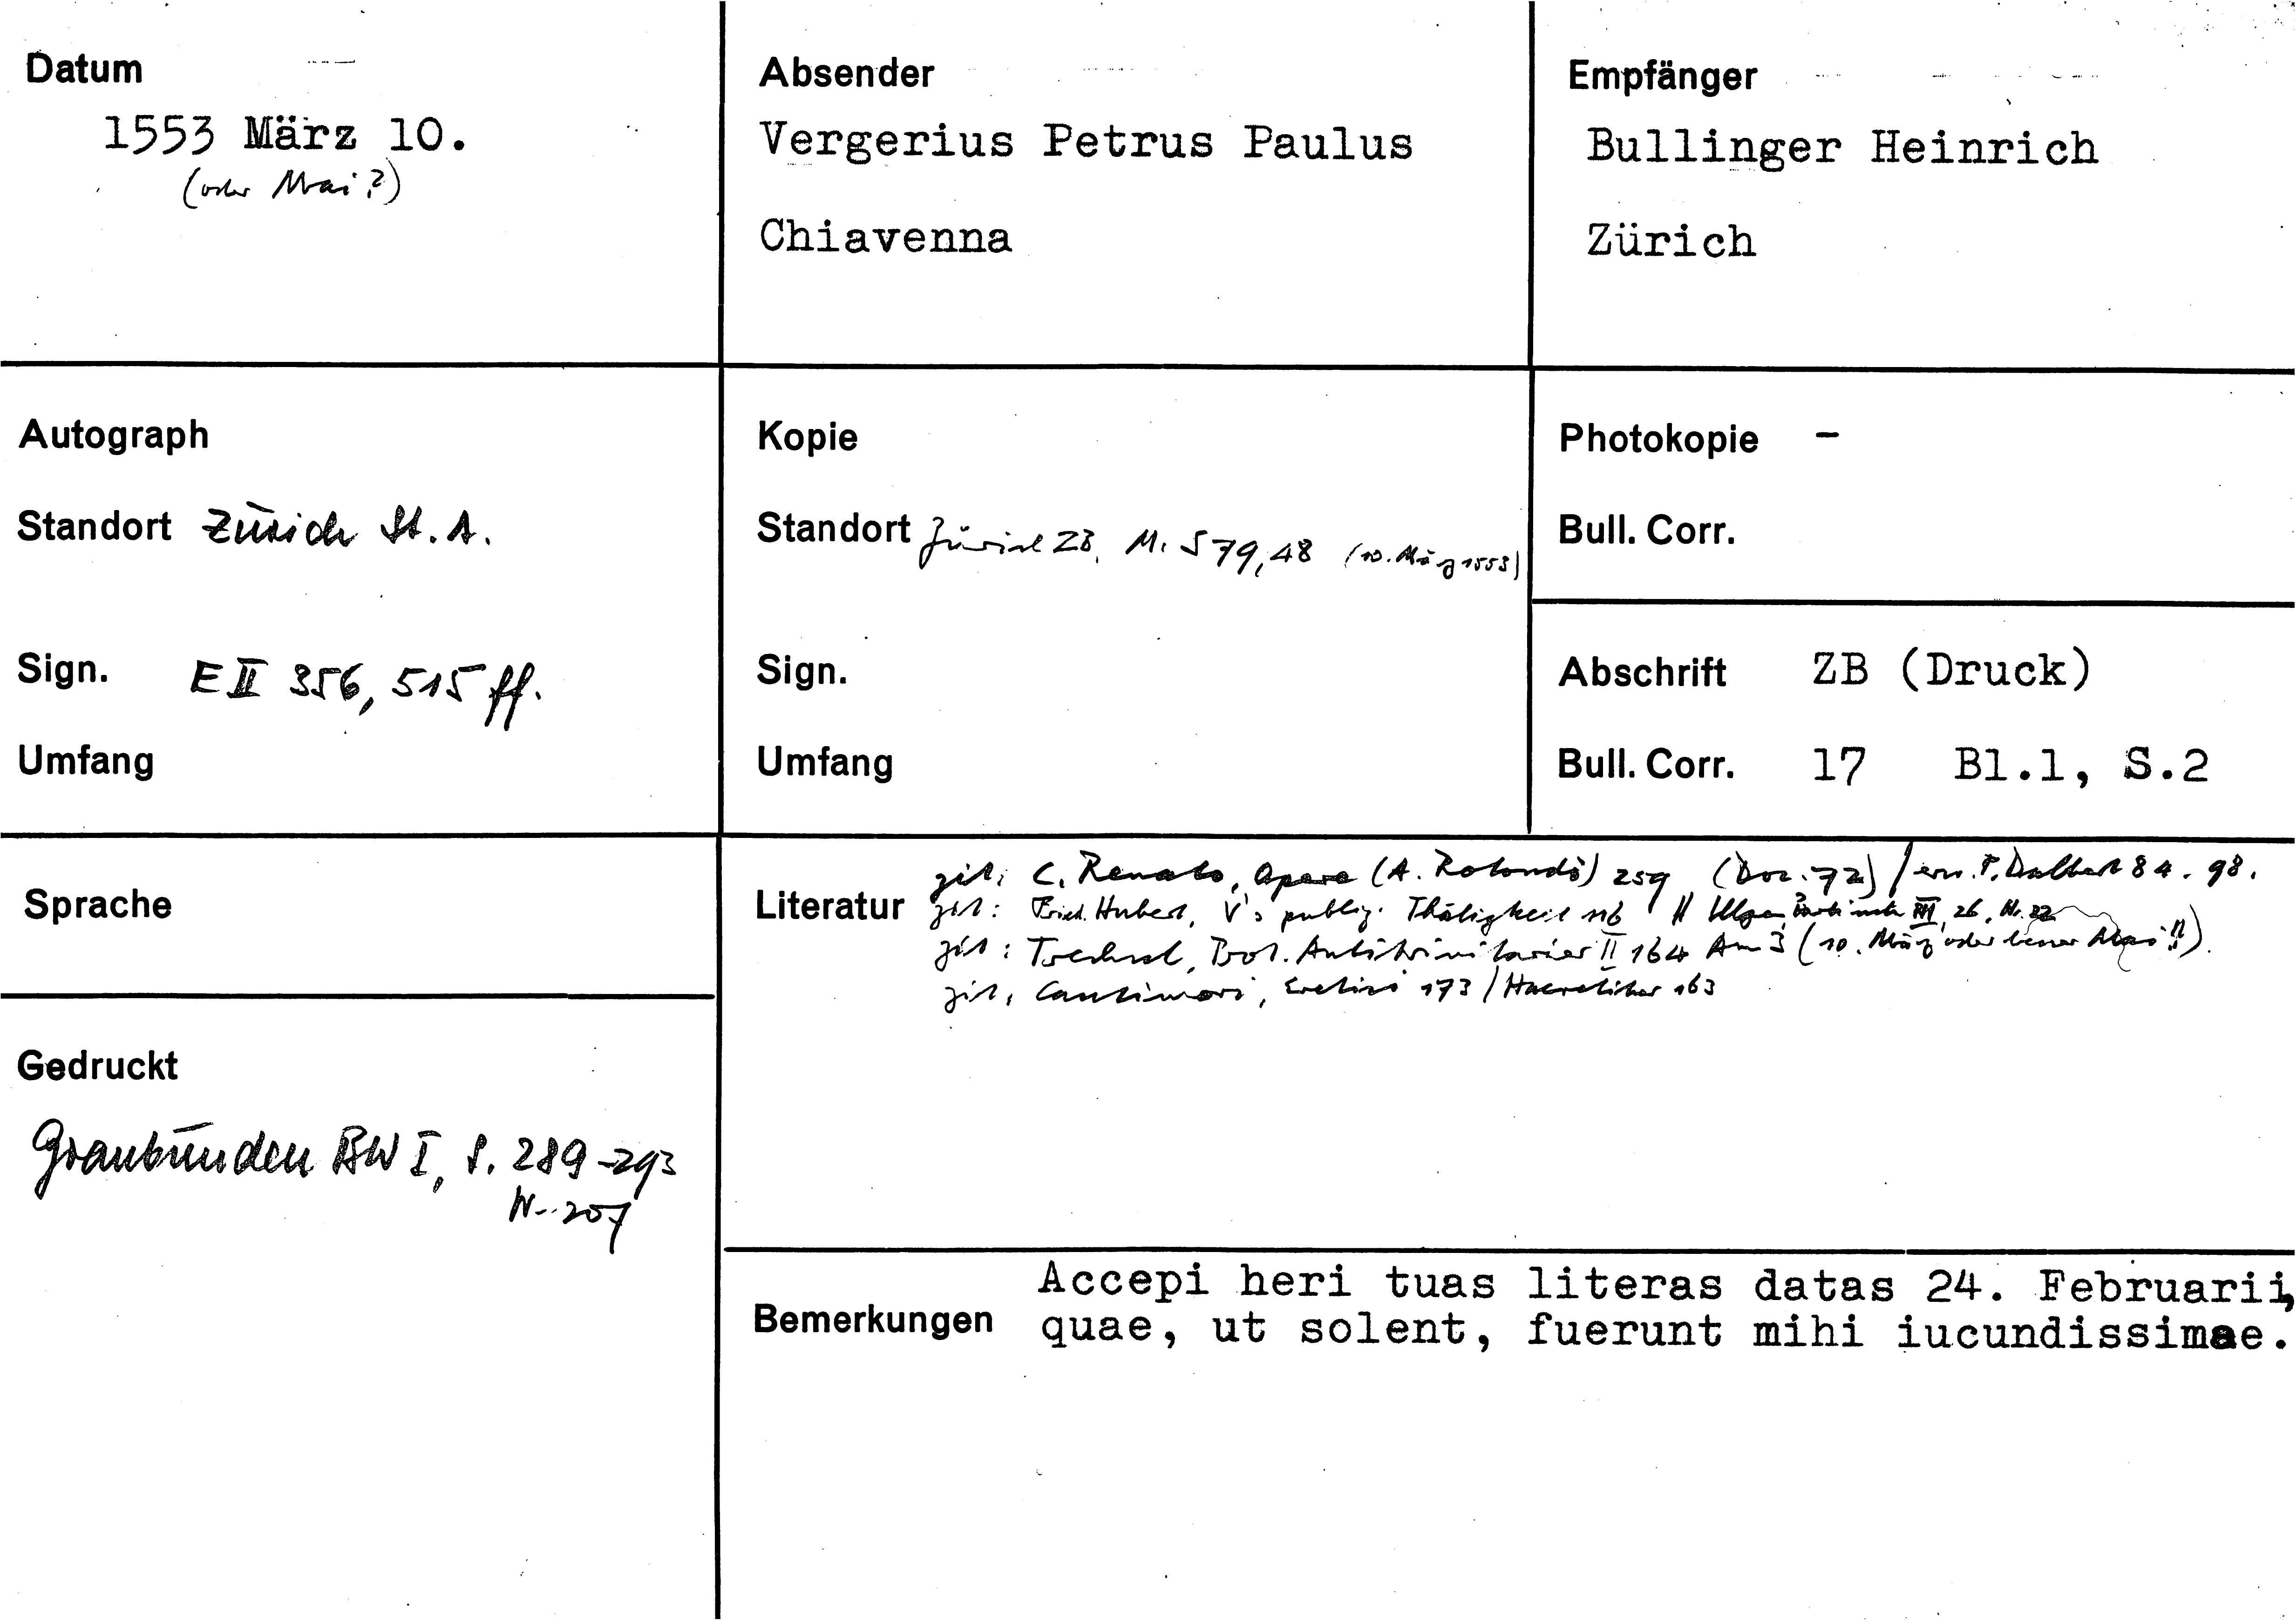 Datum
1553 März 10.
(oder Mai?)
Absender
Vergerius Petrus Paulus
Chiavenna
Empfänger
Bullinger Heinrich
Zürich
Autograph
Standort Zürich St. A.
Sign. E II 356, 515 ff.
Umfang
Kopie
Standort Zürich ZB, Ms S 79, 48 (10. März 1553)
Sign.
Umfang
Photokopie -
Bull. Corr.
Abschrift ZB (Druck)
Bull. Corr. 17 Bl.1, S.2
Sprache
Gedruckt
Graubünden BW I, S. 289-293
Nr. 207
Literatur
zit: C. Renato, Opere (A. Rotondò) 259 (Doc. 72) / erw. P. Dalbert 84. 98.
zit: Fried. Hubert, V's publiz. Thätigkeit 116 // 26, Nr. 22
zit: Trechsel, Prot. Antitrinitarier II 164 Anm 3 (10. März oder besser Mai!!).
zit: Cantimori, Eretici 173 / Haeretiker 163
Bemerkungen
Accepi heri tuas literas datas 24. Februarii,
quae, ut solent, fuerunt mihi iucundissimae.